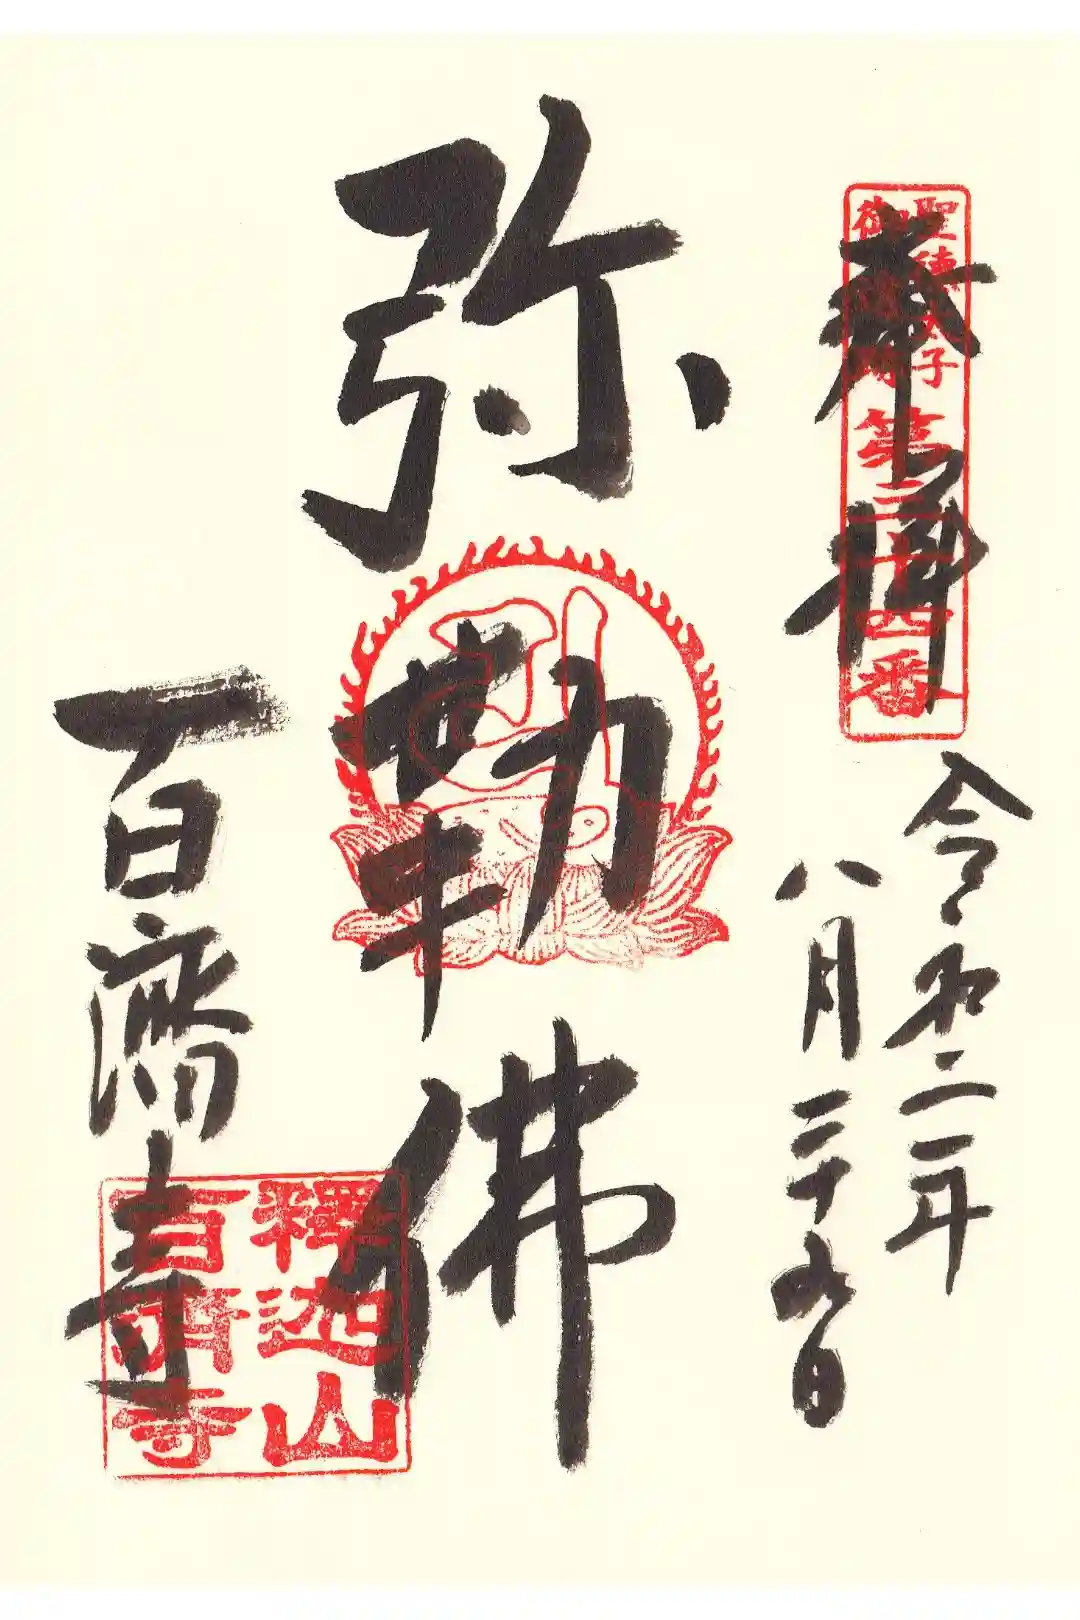 奉拝
聖徳太子
御遺跡
第三十四番
令和二年
八月二十九日
弥勒佛
百済寺
釋迦山
百濟寺